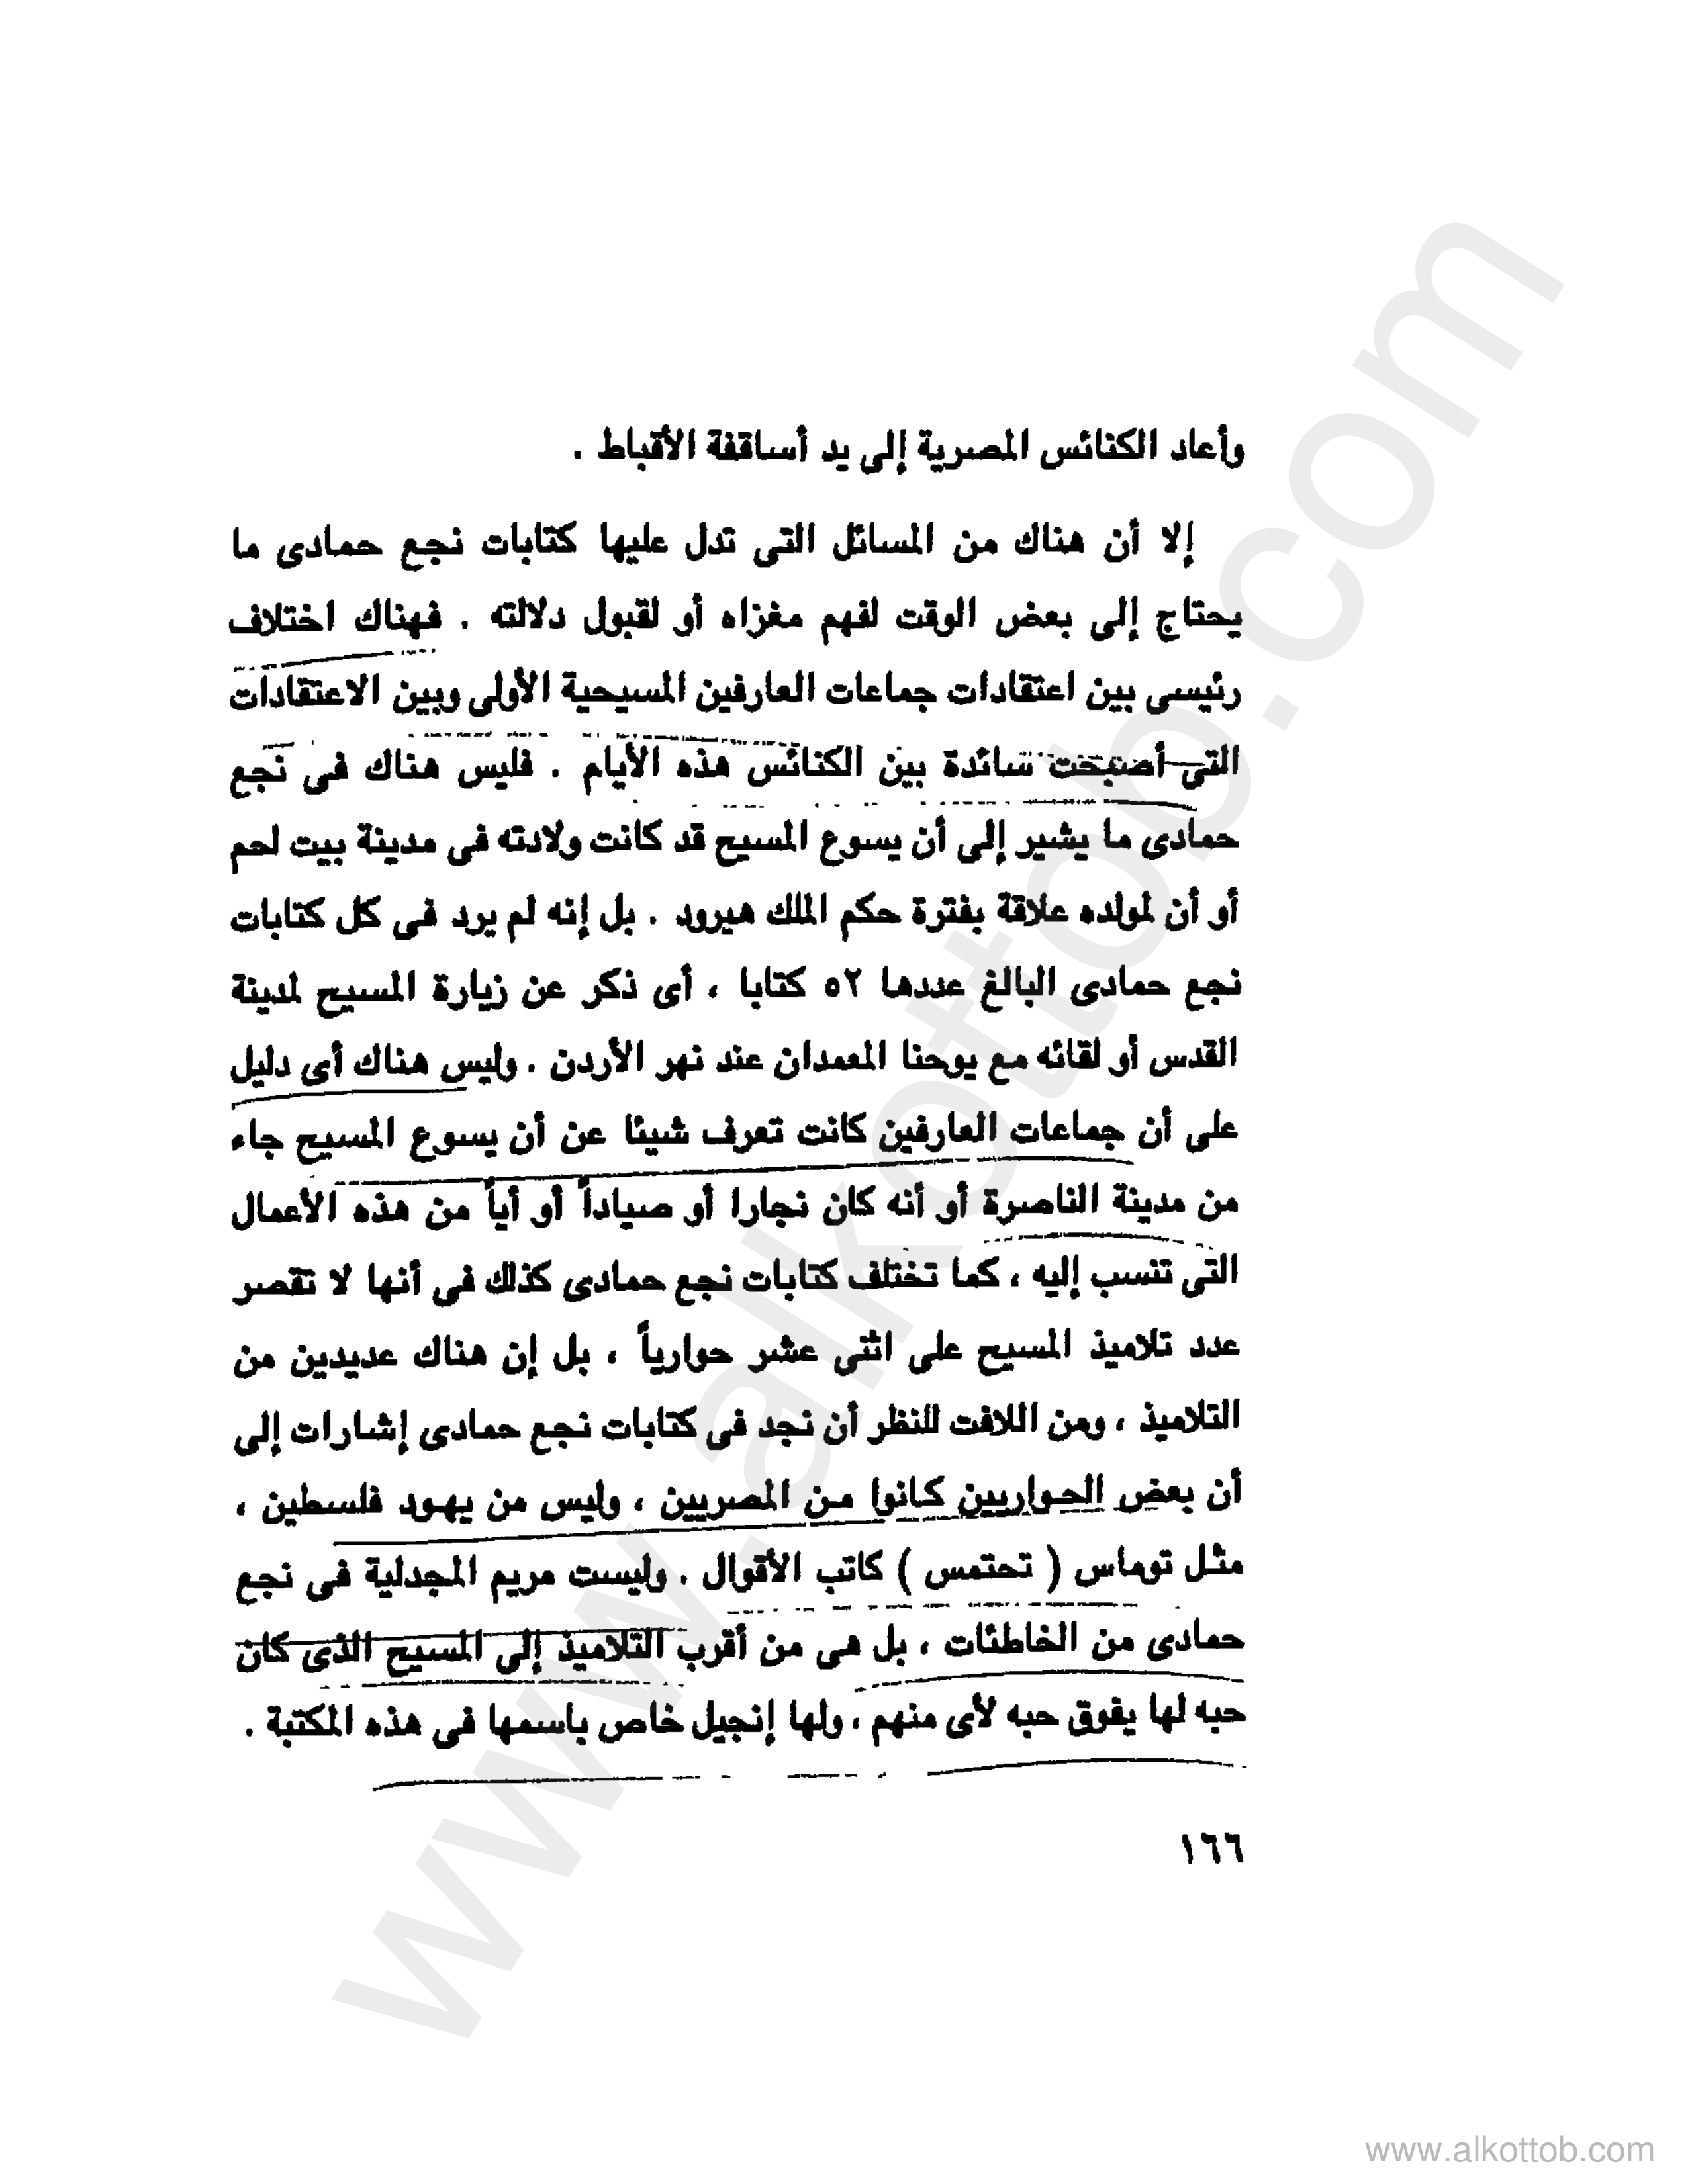 وأعاد الكنائس المصرية إلى يد أساقفة الأقباط .
إلا أن هناك من المسائل التى تدل عليها كتابات نجع حمادى ما
يحتاج إلى بعض الوقت لفهم مغزاه أو لقبول دلالته . فهناك اختلاف
رئيسى بين اعتقادات جماعات العارفين المسيحية الأولى وبين الاعتقادات
التى أصبحت سائدة بين الكنائس هذه الأيام . فليس هناك فى نجع
حمادى ما يشير إلى أن يسوع المسيح قد كانت ولادته فى مدينة بيت لحم
أو أن لمولده علاقة بفترة حكم الملك هيرود . بل إنه لم يرد فى كل كتابات
نجع حمادى البالغ عددها ٥٢ كتابا ، أى ذكر عن زيارة المسيح لمدينة
القدس أو لقائه مع يوحنا المعمدان عند نهر الأردن . وليس هناك أى دليل
على أن جماعات العارفين كانت تعرف شيئا عن أن يسوع المسيح جاء
من مدينة الناصرة أو أنه كان نجارا أو صياداً أو أياً من هذه الأعمال
التى تنسب إليه ، كما تختلف كتابات نجع حمادى كذلك فى أنها لا تقصر
عدد تلاميذ المسيح على اثنى عشر حوارياً ، بل إن هناك عديدين من
التلاميذ ، ومن اللافت للنظر أن نجد فى كتابات نجع حمادى إشارات إلى
أن بعض الحواريين كانوا من المصريين ، وليس من يهود فلسطين ،
مثل توماس ( تحتمس ) كاتب الأقوال . وليست مريم المجدلية فى نجع
حمادى من الخاطئات ، بل هى من أقرب التلاميذ إلى المسيح الذى كان
حبه لها يفوق حبه لأى منهم ، ولها إنجيل خاص باسمها فى هذه المكتبة .
١٦٦
www.alkottob.com
www.alkottob.com